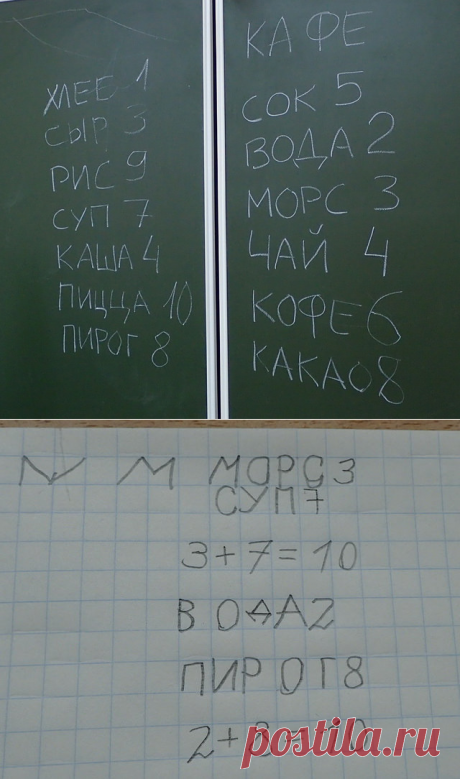 ХЛЕЕ 1
СЫР 3
РИС 9
СУП 7
КАША 4
ПИЦЦА 10
ПИРОГ 8
КАФЕ
СОК 5
ВОДА 2
МОРС 3
ЧАЙ 4
КОФЕ 6
КАКАО 8
М МОРС 3
СУП 7
3+7=10
ВОДА 2
ПИРОГ 8
2+8=10
postila.ru